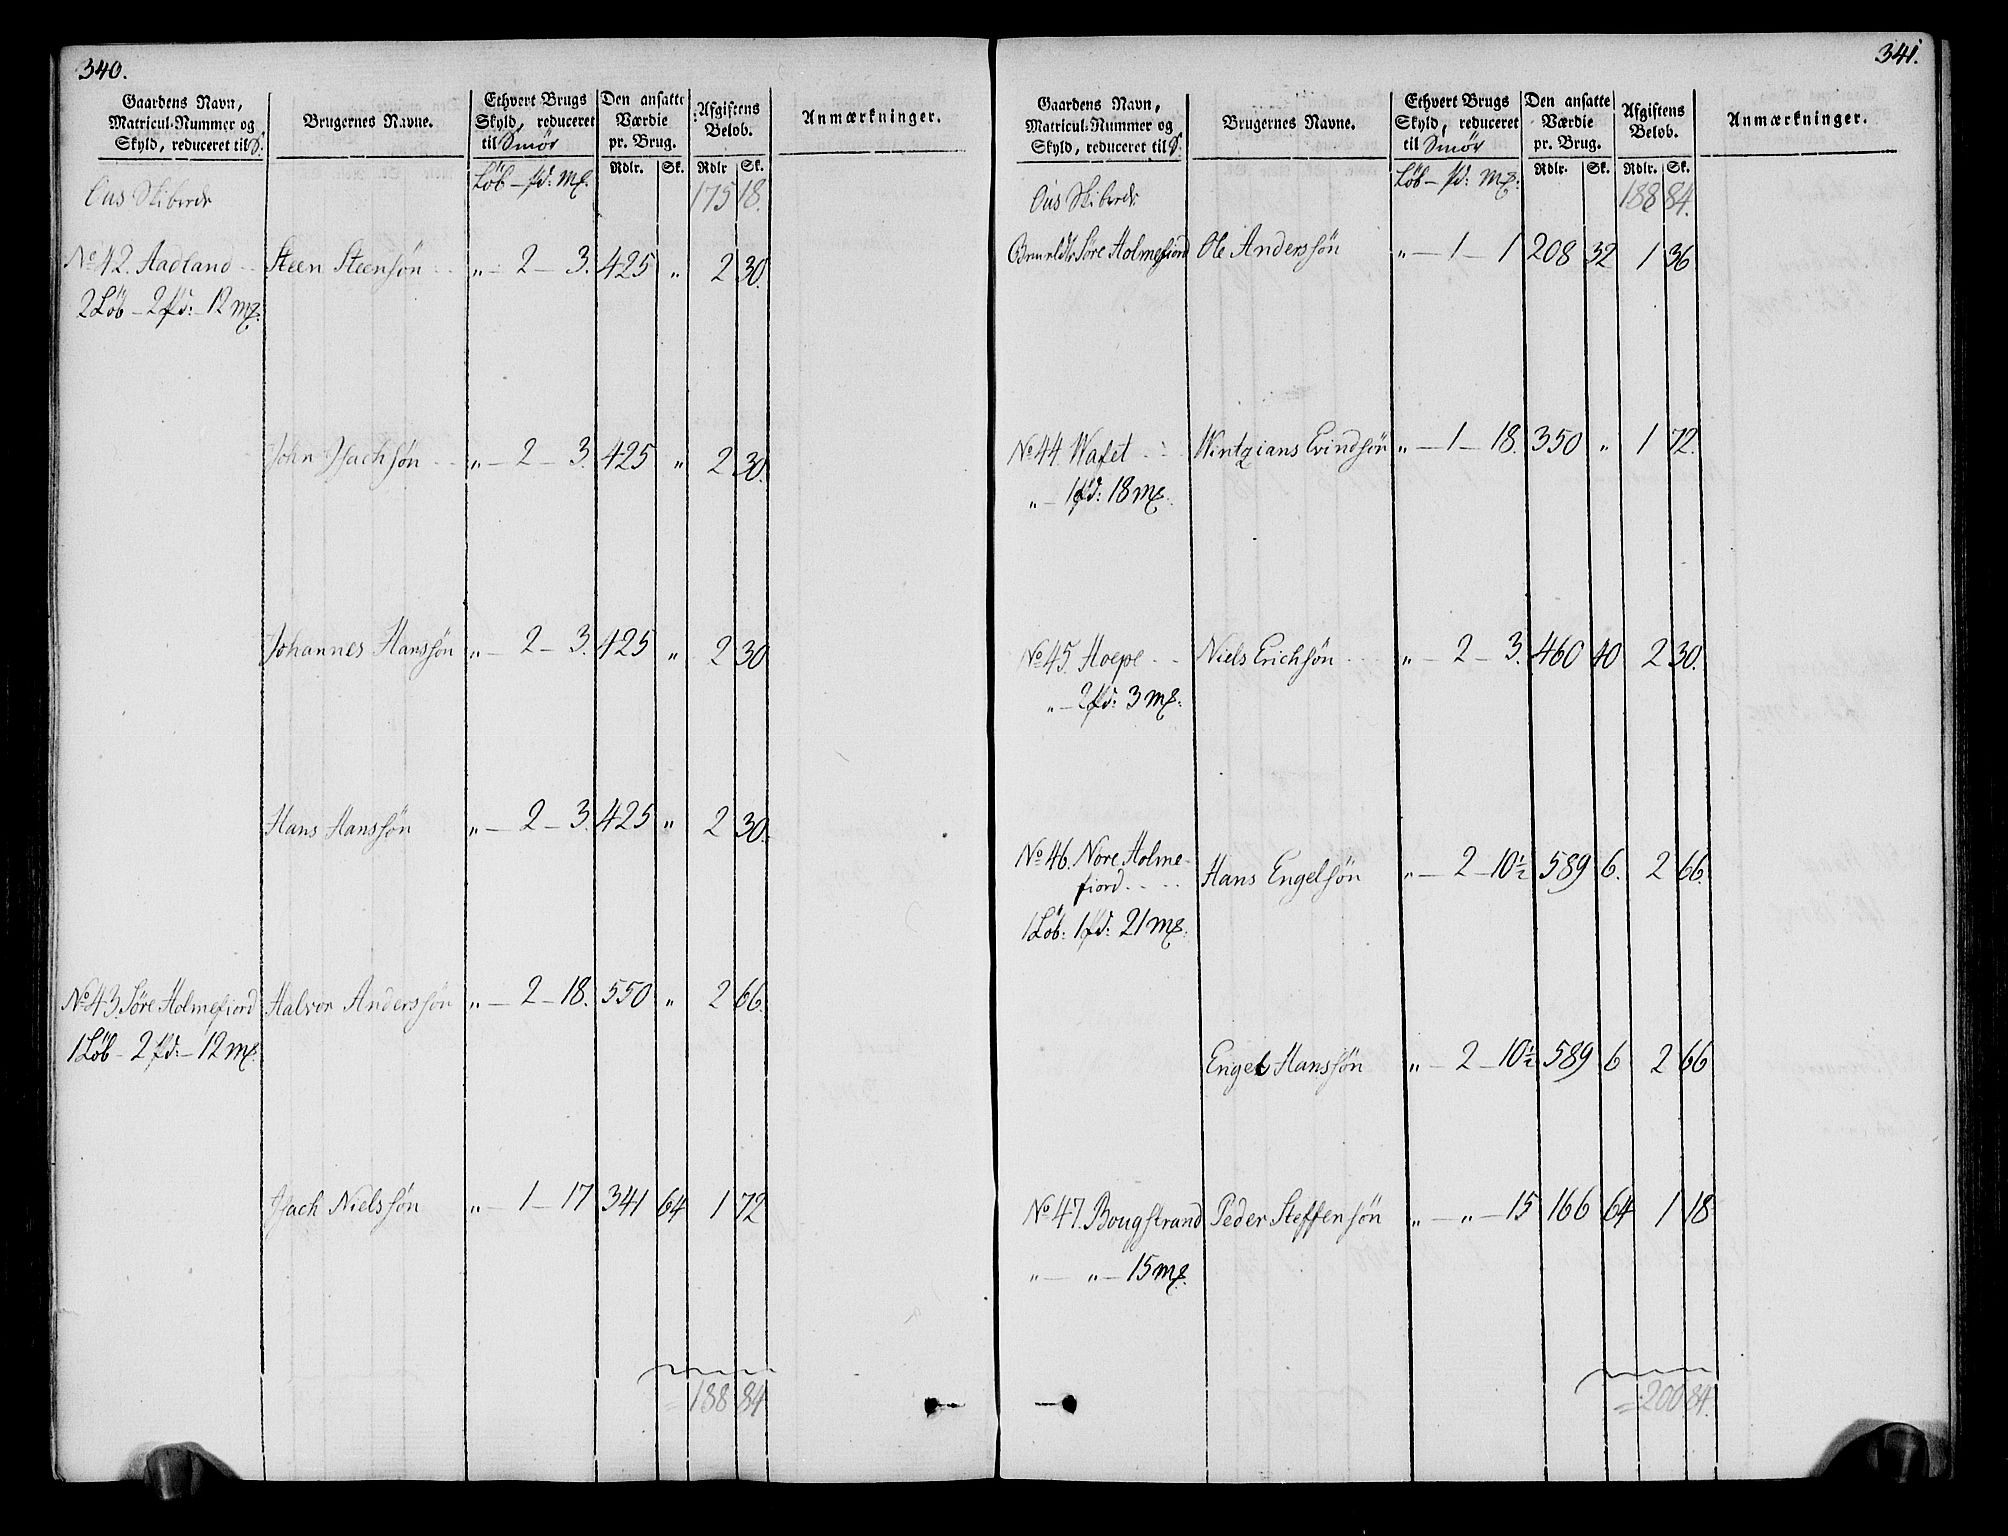 340.
Gaardens Navn, Matricul-Nummer og Skyld, reduceret til | Brugernes Navne. | Ethvert Brugs Skyld, reduceret til Smör | Den ansatte Værdie pr. Brug. | Afgiftens Belob. | Anmærkninger.
Löb — pd: Mk. | Rdlr. | Sk. | Rdlr | Sk.
Ous Skiberde | 175 | 18.
No 42. Aadland | Steen Steensøn | „ — 2 — 3. | 425 | „ | 2 | 30.
2 Løb — 2 pd: — 12 mk:
John Jsachsøn | „ — 2 — 3. | 425 | „ | 2 | 30.
Johannes Hanssøn | „ — 2 — 3. | 425 | „ | 2 | 30
Hans Hanssøn | „ — 2 — 3. | 425 | „ | 2 | 30.
No 43. Søre Holmefiord | Halvor Anderssøn | „ — 2 — 18. | 550 | „ | 2 | 66.
1 Løb — 2 pd: — 12 mk.
Jsach Nielssøn | „ — 1 — 17 | 341 | 64 | 1 | 72
188 | 84
341.
Gaardens Navn, Matricul-Nummer og Skyld, reduceret til | Brugernes Navne. | Ethvert Brugs Skyld, reduceret til Smör | Den ansatte Værdie pr. Brug. | Afgiftens Belob. | Anmærkninger.
Löb — pd: Mk: | Rdlr. | Sk. | Rdlr. | Sk.
Ous Skibrede | 188 | 84.
Søre Holmefiord | Ole Anderssøn | „ — 1 — 1 | 208 | 32 | 1 | 36
No 44. Wafet | Evindsøn | „ — 1 — 18. | 350 | „ | 1 | 72.
„ — 1 pd: 18 mk.
No 45. Hoepe | Niels Erichsøn | „ — 2 — 3. | 460 | 40 | 2 | 30.
„ — 2 pd: 3 mk:
No 46. Nore Holme-
fiord | Hans Engelsøn | „ — 2 — 10½ | 589 | 6. | 2 | 66.
1 Løb: 1 pd: 21 mk:
Engel Hanssøn | „ — 2 — 10½ | 589 | 6 | 2 | 66
No 47. Bougstrand | Peder Steffensøn | „ — „ — 15 | 166 | 64 | 1 | 18
„ — „ — 15 mk.
200 | 84.